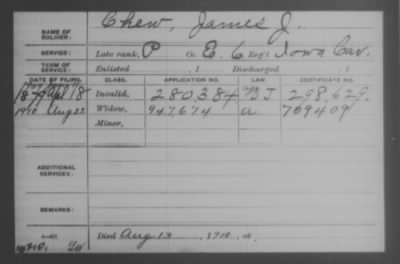 NAME OF SOLDIER: Chew, James J.
SERVICE: Late rank, P Co. E, 6 Reg't Iowa Cav.
TERM OF SERVICE: Enlisted , 1 Discharged , 1
DATE OF FILING. CLASS. APPLICATION NO. LAW. CERTIFICATE NO.
1879 Apl 18 Invalid, 280.384 J 298.629.
1910 Aug 22 Widow, 947.674 a 709409
Minor,
ADDITIONAL SERVICES:
REMARKS:
Died Aug 13, 1910, at